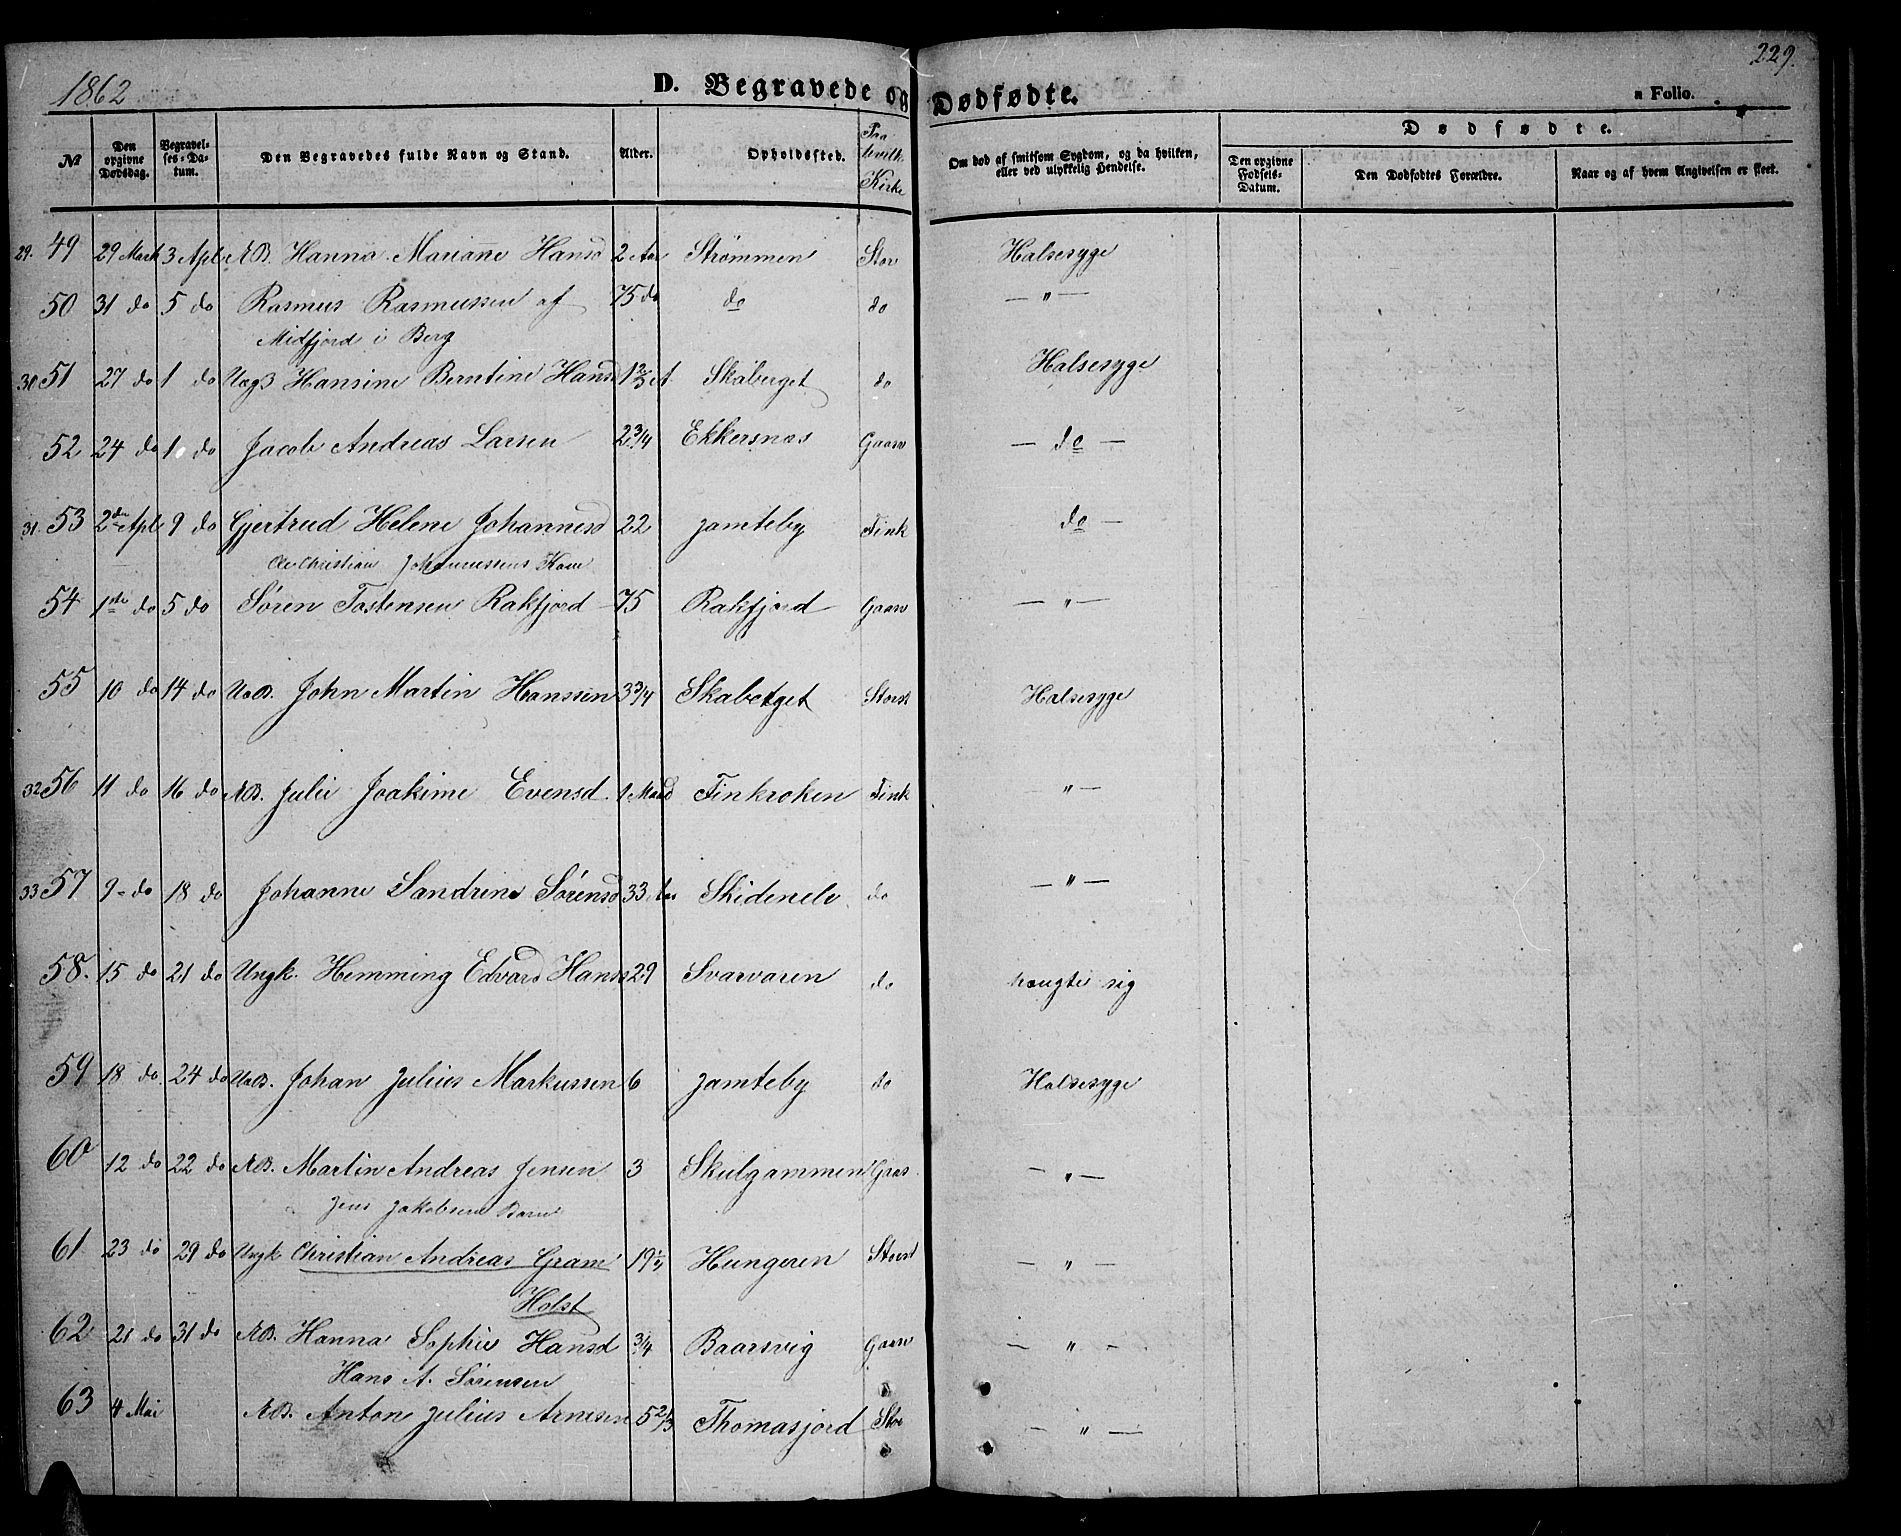 1862
D. Begravede og Dødfødte.
229.
a Folio.
Dødfødte.
№
Den opgivne Dødsdag.
Begravelses-Datum.
Den Begravedes fulde Navn og Stand.
Alder.
Opholdssted.
Kirke
Om død af smitsom Sygdom, og da hvilken, eller ved ulykkelig Hendelse.
Den opgivne Fødsels-Datum.
Den Dødfødtes Forældre.
Naar og af hvem Angivelsen er skeet.
29. 49 29 Mart 3 Apl ÆB. Hanna Marianne Hansd 2 Aar Strømmen Stor Halsesyge
50 31 do 5 do Rasmus Rasmussen af 75 do do do — " —
Midfjord i Berg
30 51 27 do 1 do UægB Hansine Berntine Hansd 1 2/3 A Skaberget do Halsesyge
52 24 do 1 do Jacob Andreas Larsen 2 3/4 Ekkersnæs Gaasv — do —
31. 53 2den Apl 9 do Gjertrud Helene Johannesd 22 Jamteby Fink do —
Ole Christian Johannessens Kone
54 1ste do 5 do Søren Tostensen Rakfjord 75 Rakfjord Gaasv — " —
55 10 do 14 do UæB. John Martin Hanssen 3 3/4 Skaberget Storst Halsesyge
32 56 11 do 16 do ÆB. Julie Joakime Evensd. 1 Maand Finkroken Fink — " —
33 57 9 do 18 do Johanne Sandrine Sørensd 33 Aar Skidenelv do — " —
58. 15 do 21 do Ungk. Hemming Edvard Hanss 29 Svarvaren do hængte sig
59 18 do 24 do UæB. Johan Julius Markussen 6 Jamteby do Halsesyge
60 12 do 22 do ÆB. Martin Andreas Jensen 3 Skulgammen Gaas — " —
Jens Jakobsens Barn
61 23 do 29 do Ungk Christian Andreas Gram 19 1/2 Hungeren Storst — " —
Holst
62 21 do 31 do ÆB. Hanna Sophie Hansd 3/4 Baarsvig Gaasv — " —
Hans A. Sørensen
63 4 Mai ÆB. Anton Julius Arnesen 5 2/3 Thomasjord Stor — " —